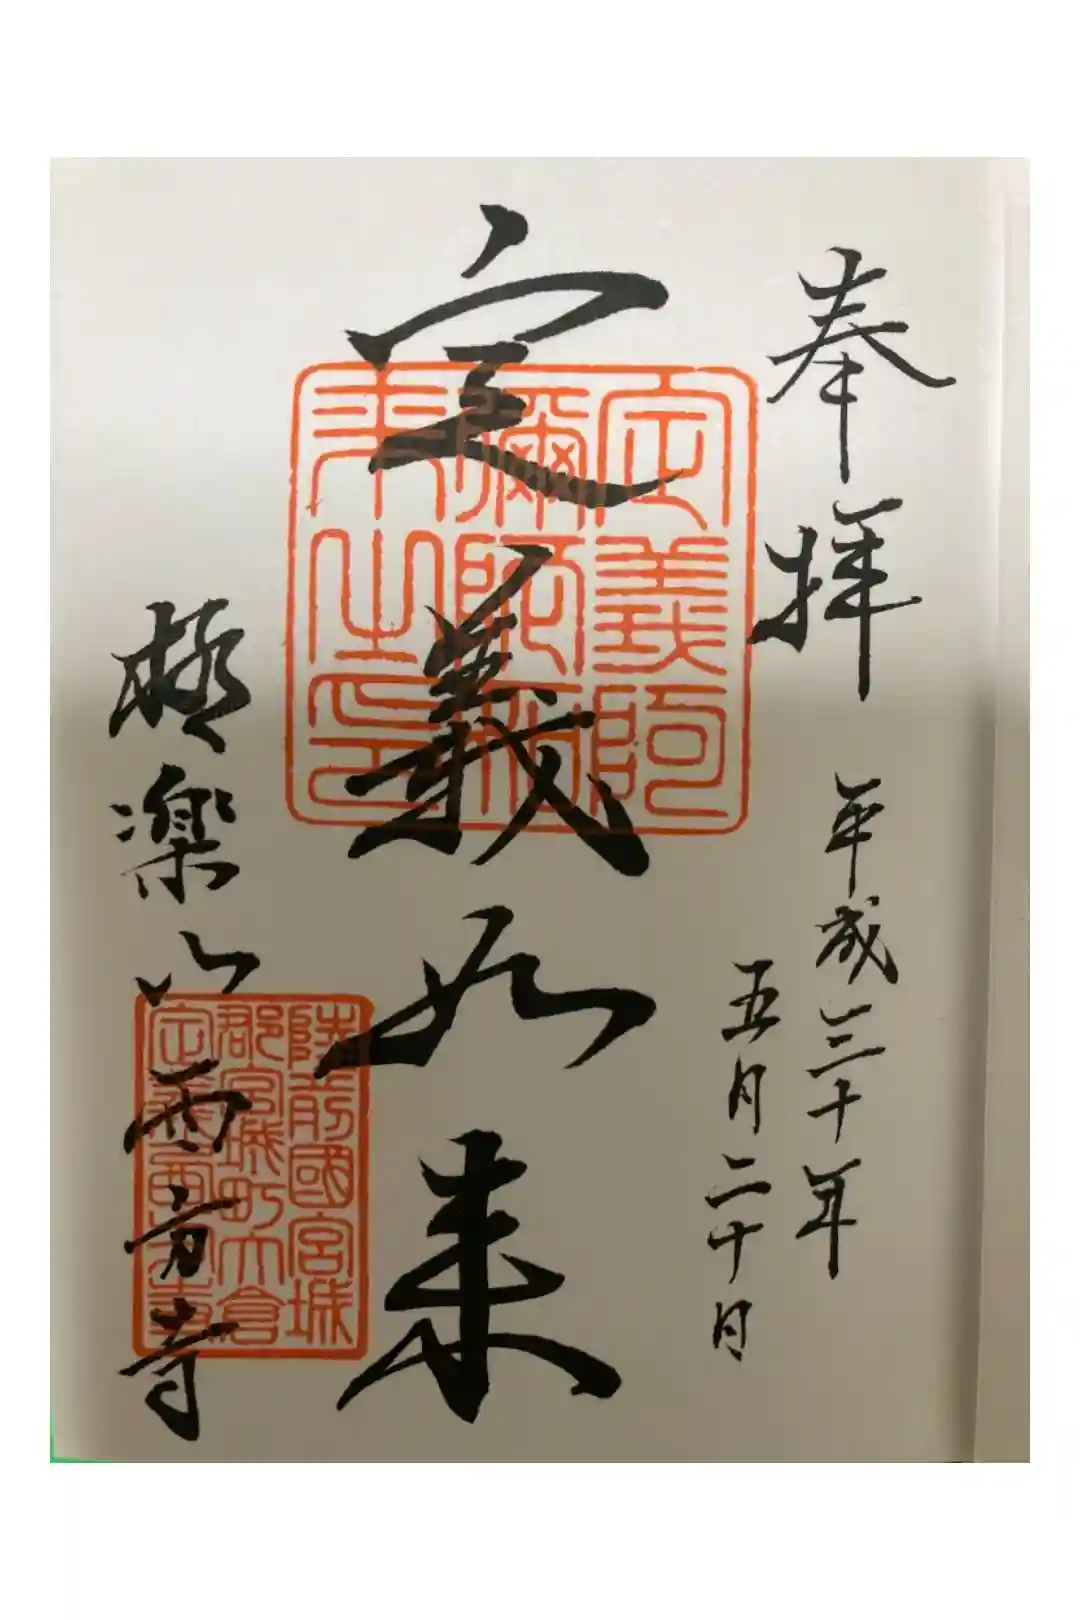 奉拝
平成三十年
五月二十日
定義如来
定義阿
彌陀如
来之印
極楽山西方寺
陸前國宮城
郡宮城町大倉
定義西方寺